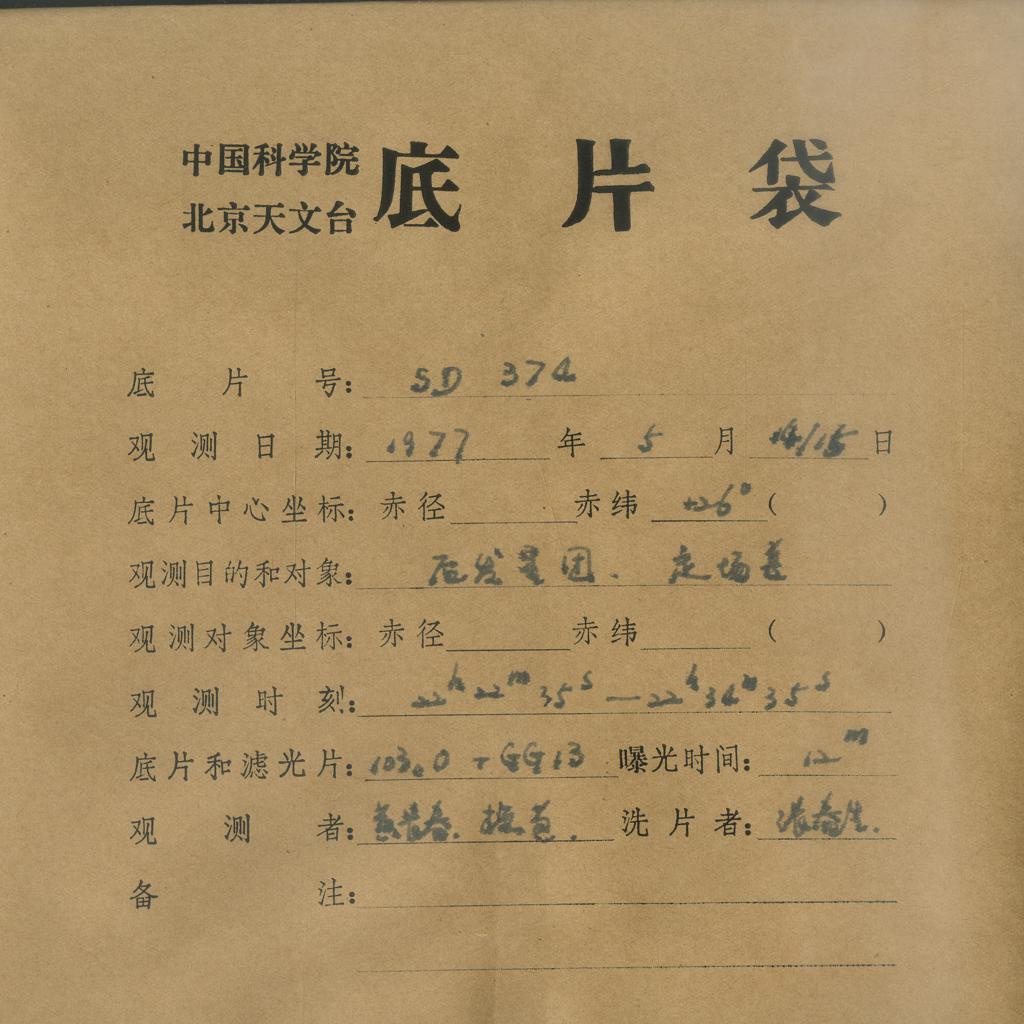 中国科学院
北京天文台 底片袋
底片号: SD 374
观测日期: 1977 年 5 月 14/15 日
底片中心坐标: 赤径 赤纬 +26° ( )
观测目的和对象: 后发星团. 定场差
观测对象坐标: 赤径 赤纬 ( )
观测时刻: 22h 22m 35s — 22h 34m 35s
底片和滤光片: 103aO + GG13 曝光时间: 12m
观测者: 洗片者:
备注: